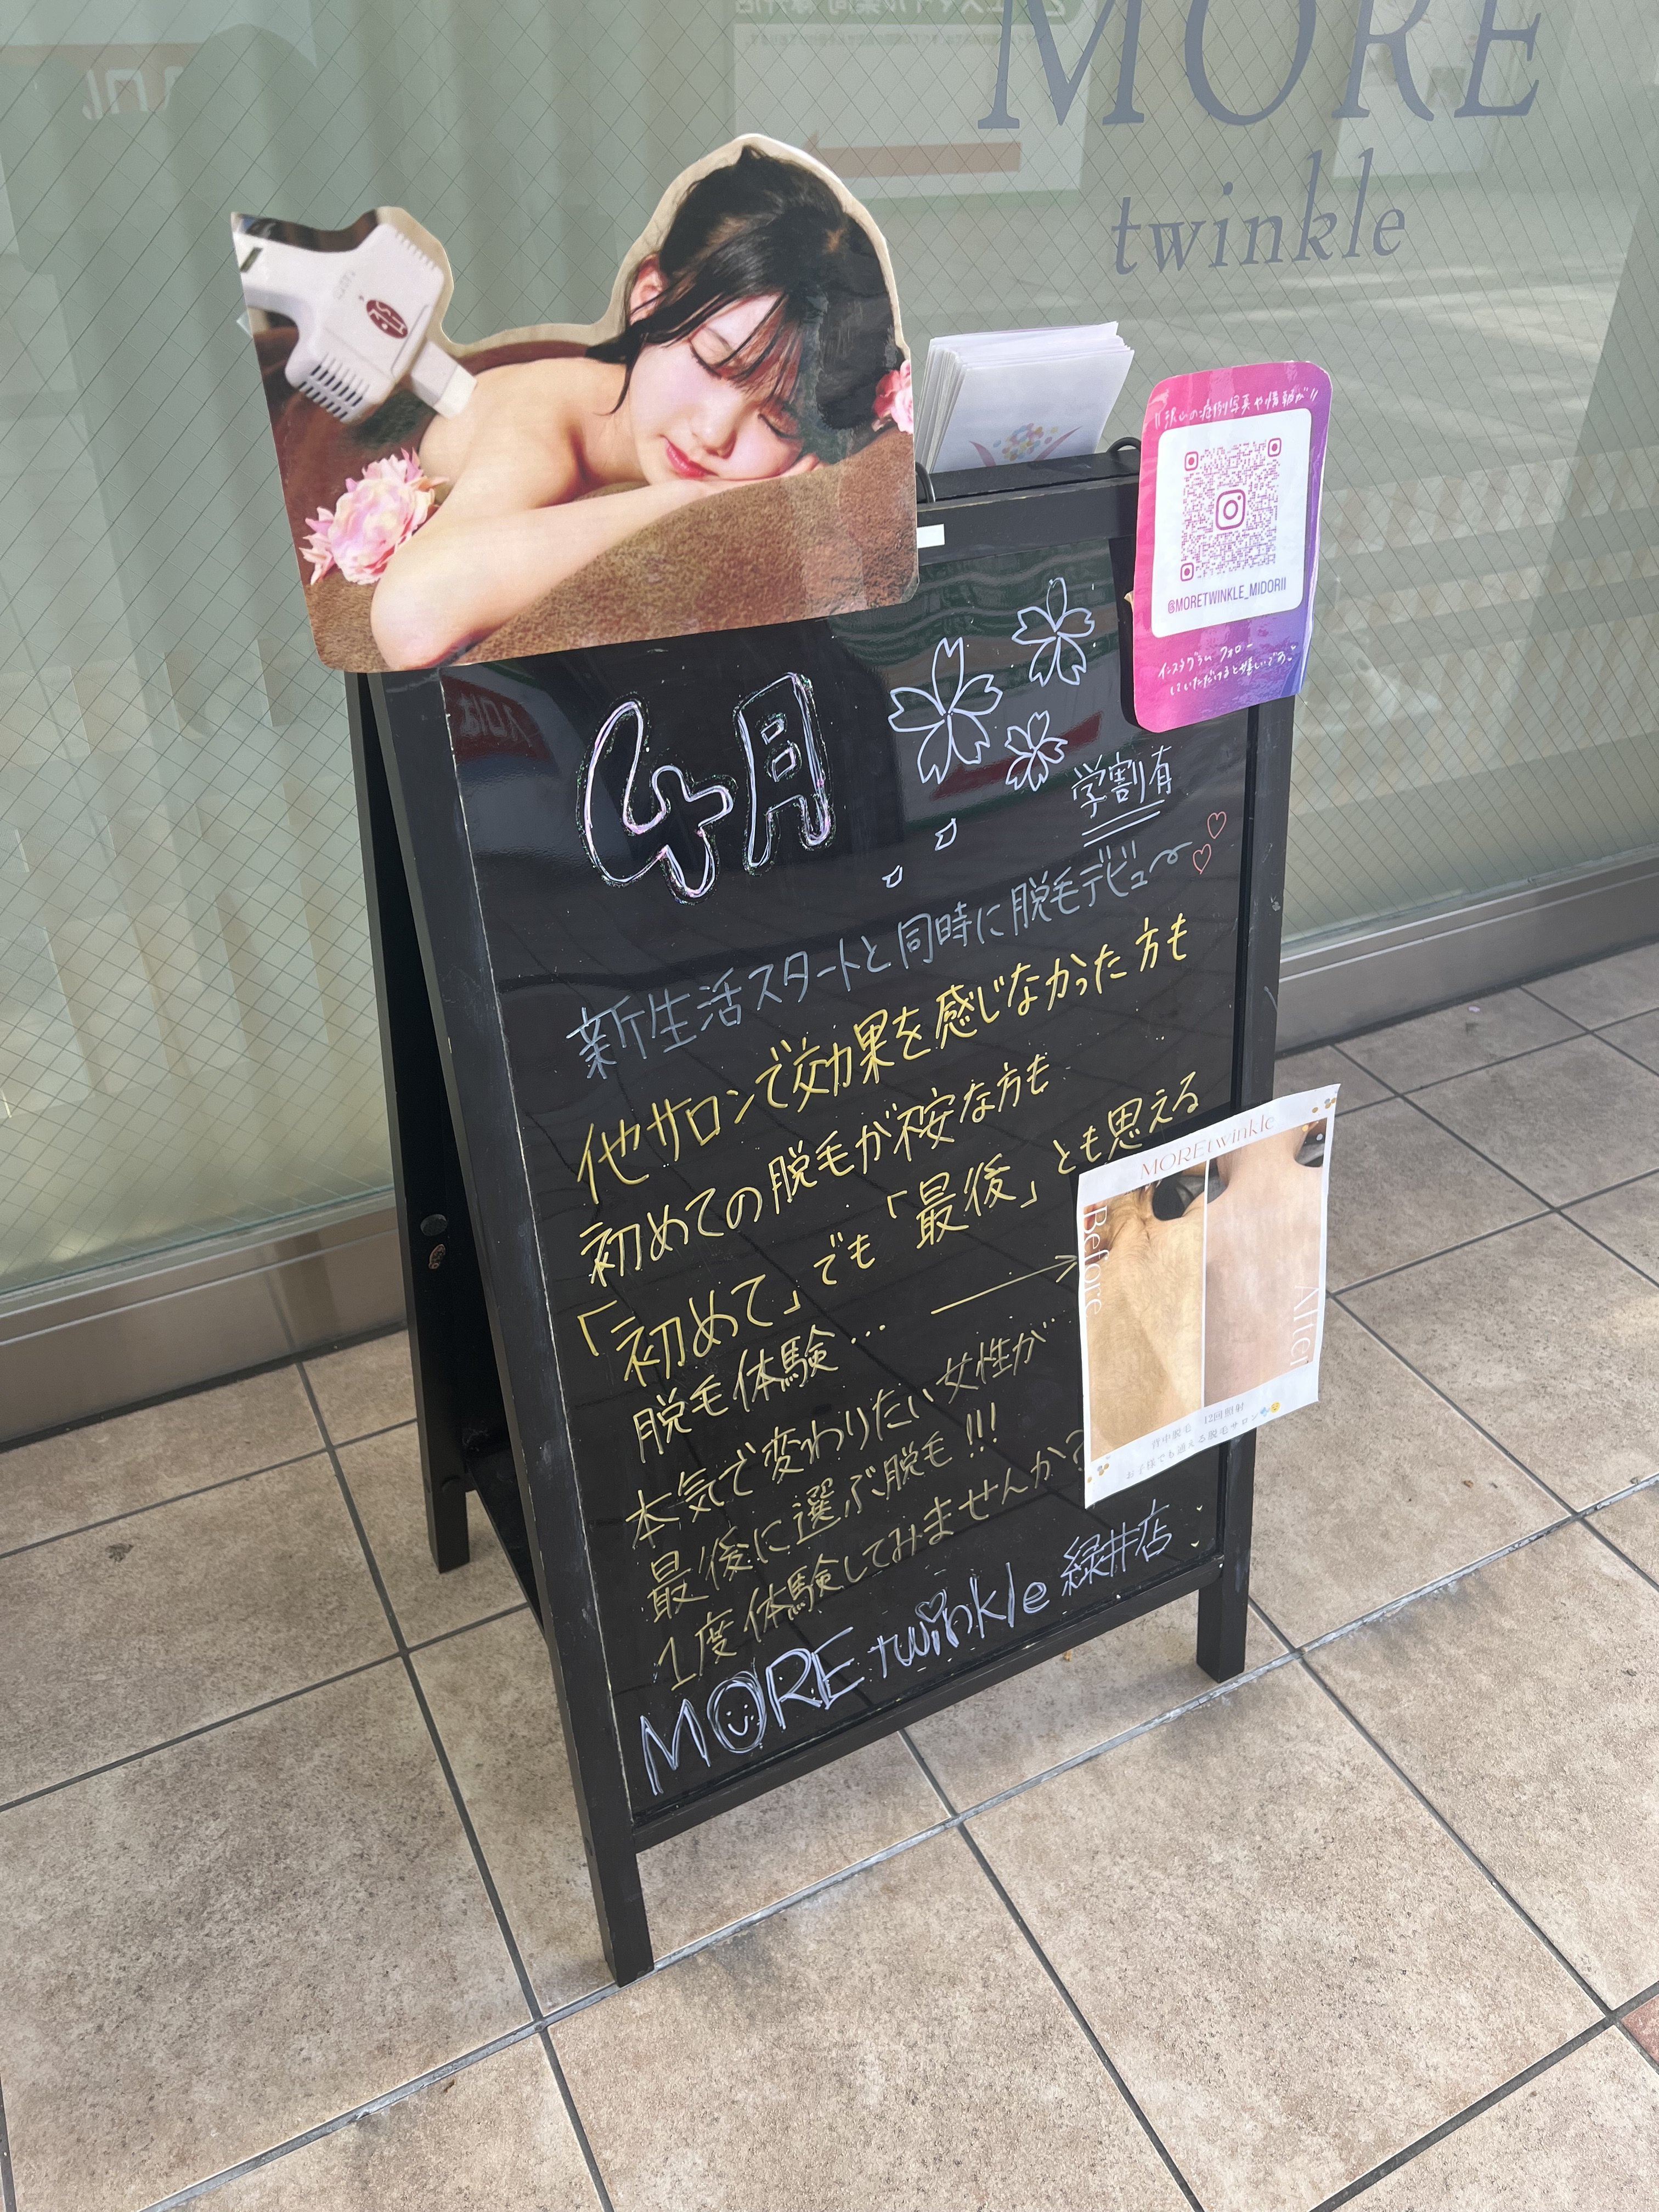 MORE
twinkle
沢山の症例写真や情報が
@MORETWINKLE_MIDORII
インスタグラム フォロー
していただけると嬉しいです
4月
学割有
新生活スタートと同時に脱毛デビュー
他サロンで効果を感じなかった方も
初めての脱毛が不安な方も
「初めて」でも「最後」とも思える
脱毛体験...
本気で変わりたい女性が
最後に選ぶ脱毛!!!
1度体験してみませんか?
MORE twinkle 緑井店
MOREtwinkle
Before
After
背中脱毛 12回照射
お子様でも通える脱毛サロン